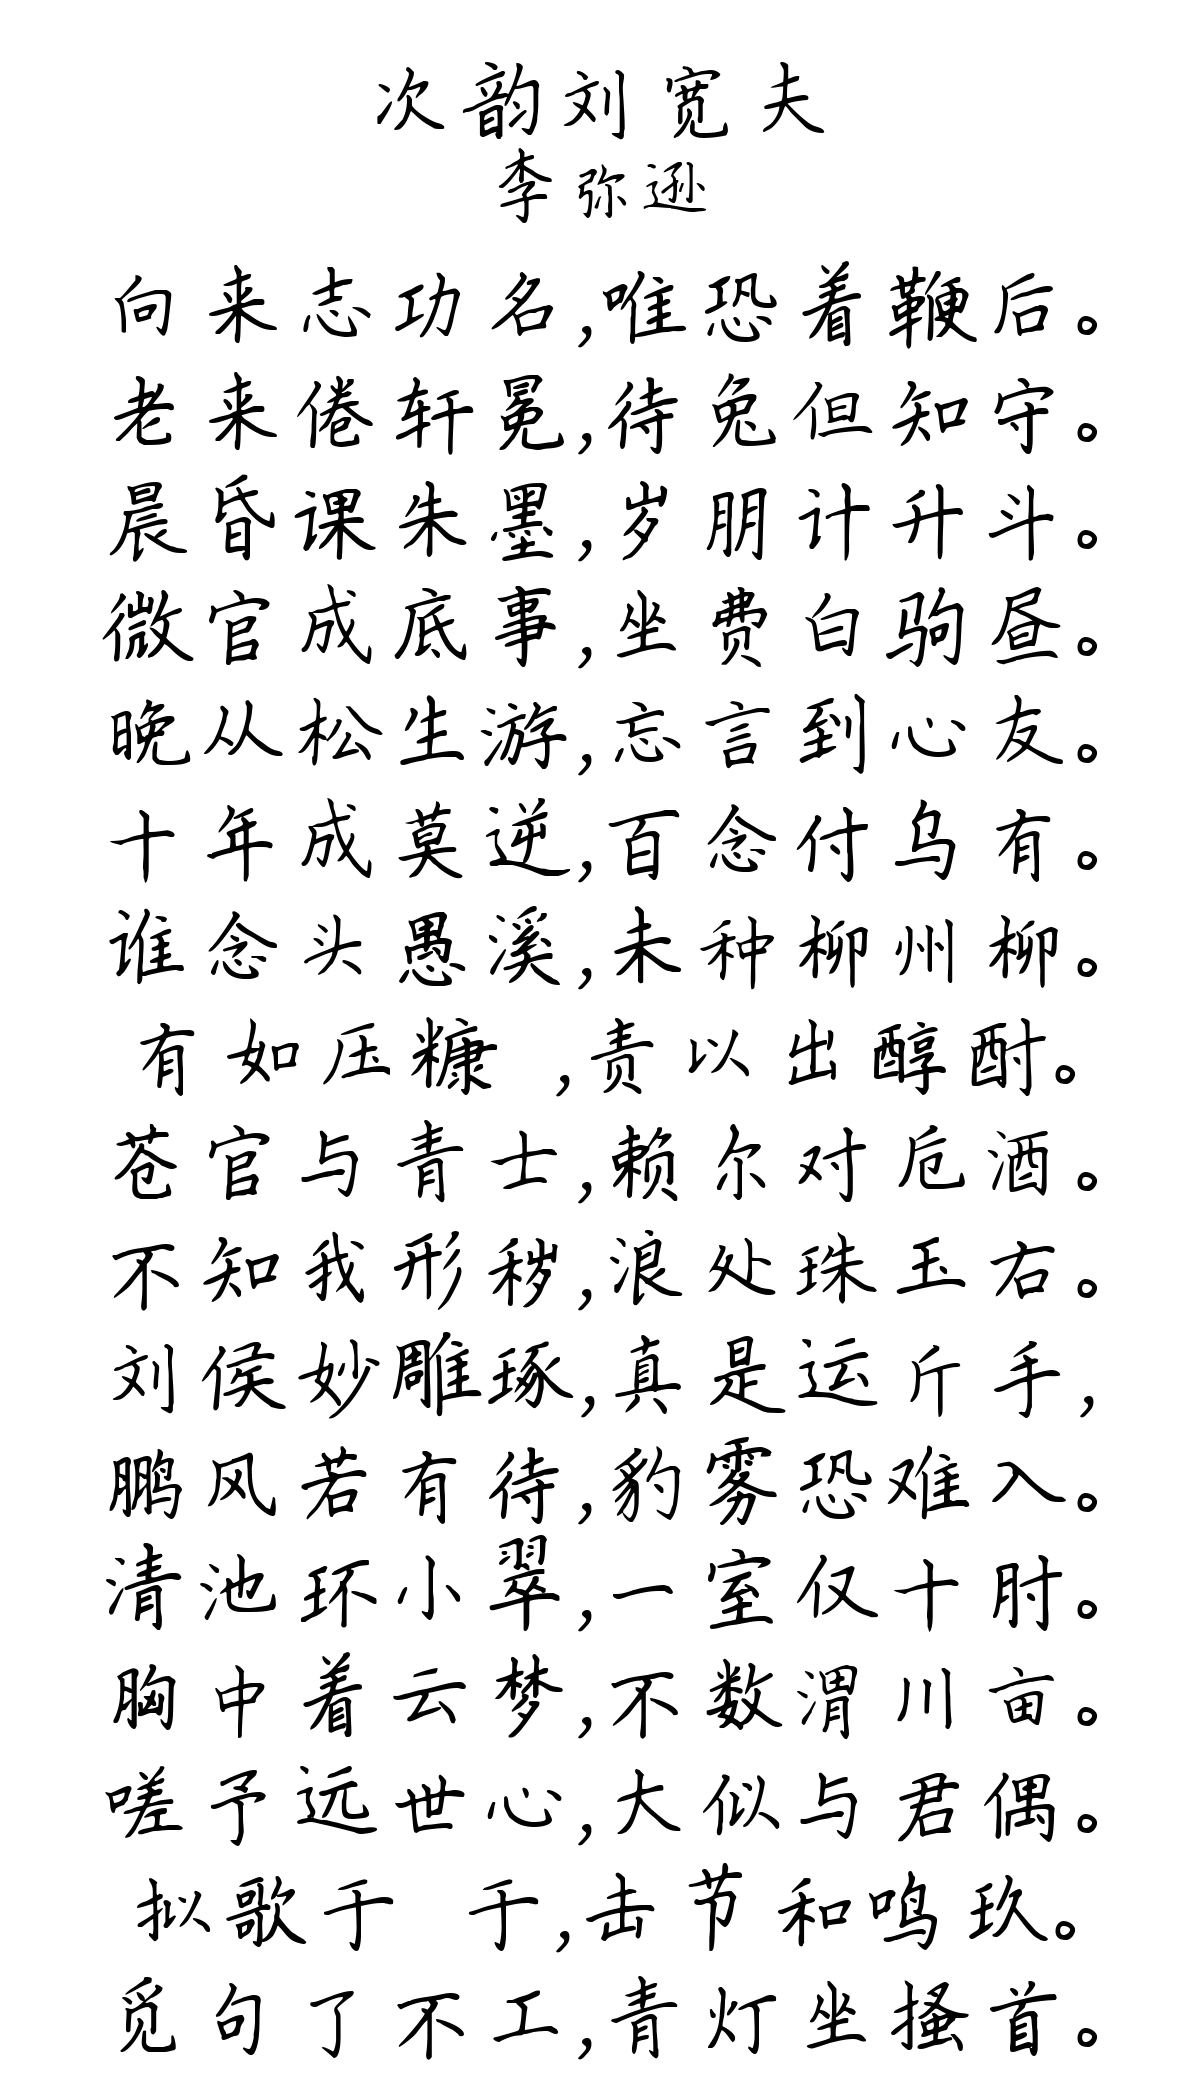 次韵刘宽夫
李弥逊
向来志功名,唯恐着鞭后。
老来倦轩冕,待兔但知守。
晨昏课朱墨,岁朋计升斗。
微官成底事,坐费白驹昼。
晚从松生游,忘言到心友。
十年成莫逆,百念付乌有。
谁念头愚溪,未种柳州柳。
有如压糠 ,责以出醇酎。
苍官与青士,赖尔对卮酒。
不知我形秽,浪处珠玉右。
刘侯妙雕琢,真是运斤手,
鹏风若有待,豹雾恐难入。
清池环小翠,一室仅十肘。
胸中着云梦,不数渭川亩。
嗟予远世心,大似与君偶。
拟歌于 于,击节和鸣玖。
觅句了不工,青灯坐搔首。